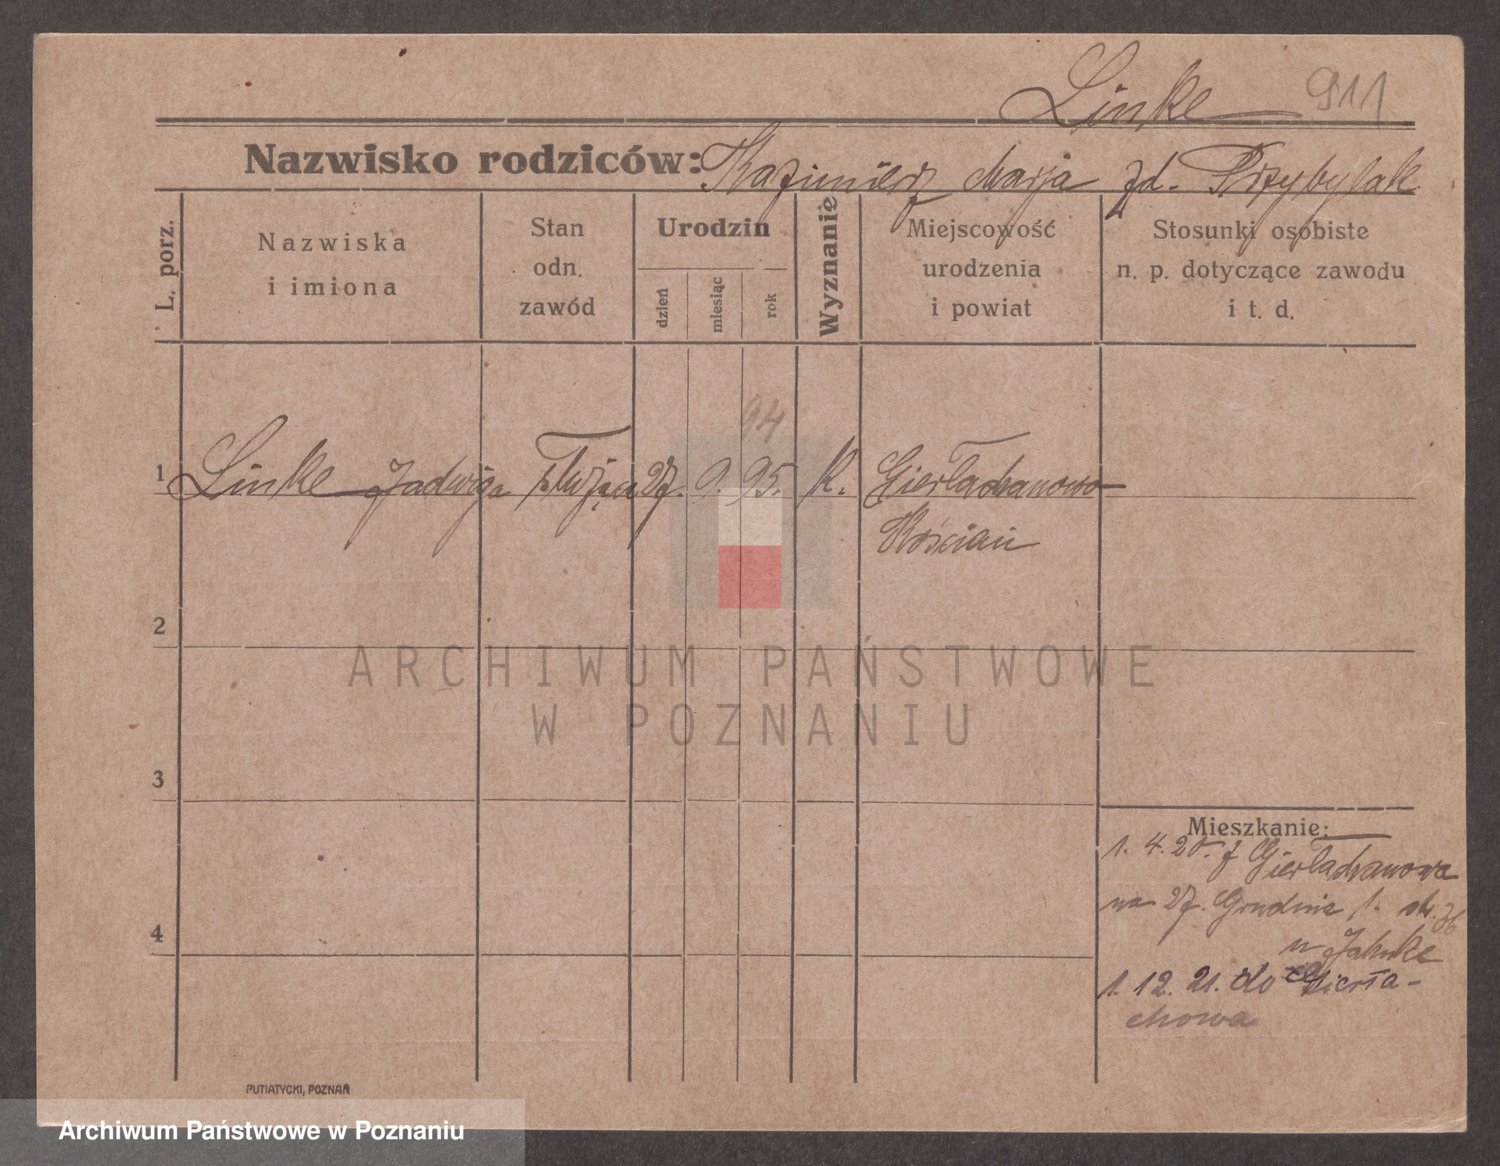 Linke 911
Nazwisko rodziców: Kazimierz Marja zd. Przybylak
L. porz.
Nazwiska
i imiona
Stan
odn.
zawód
Urodzin
dzień
miesiąc
rok
Wyznanie
Miejscowość
urodzenia
i powiat
Stosunki osobiste
n. p. dotyczące zawodu
i t. d.
94
1 Linke Jadwiga służąca 27. 9. 95. K. Gierłachowo
Kościan
2
3
4
ARCHIWUM PAŃSTWOWE
W POZNANIU
Mieszkanie:
1. 4. 20. z Gierłachowa
na 27. Grudnia 1.
u Jahnke
1. 12. 21. do Gierła-
chowa
PUTIATYCKI, POZNAŃ
Archiwum Państwowe w Poznaniu